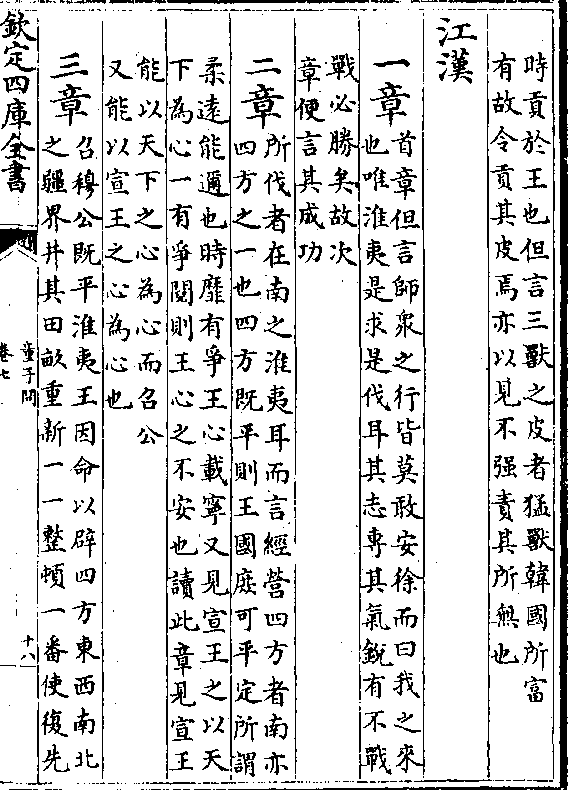 時貢於王也但言三獸之皮者猛獸韓國所富
有故令貢其皮焉亦以見不强責其所無也
江漢
一章首章但言師衆之行皆莫敢安徐而曰我之來
也唯淮夷是求是伐耳其志專其氣銳有不戰
戰必勝矣故次
章便言其成功
二章所伐者在南之淮夷耳而言經營四方者南亦
四方之一也四方既平則王國庶可平定所謂
柔遠能邇也時靡有爭王心載寧又見宣王之以天
下為心一有爭鬩則王心之不安也讀此章見宣王
能以天下之心為心而召公
又能以宣王之心為心也
三章召穆公既平淮夷王因命以辟四方東西南北
之疆界井其田畝重新一一整頓一番使復先
欽定四庫全書
童子問
卷七
十八